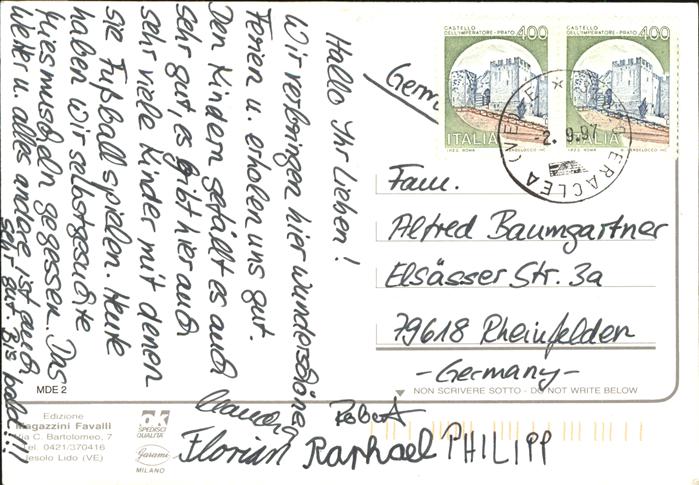 Hallo Ihr Lieben!
Wir verbringen hier wunderschöne
Ferien u. erholen uns gut.
Den Kindern gefällt es auch
sehr gut, es gibt hier auch
sehr viele Kinder mit denen
sie Fußball spielen. Heute
haben wir selbstgesuchte
Miesmuscheln gegessen. Das
Wetter u. alles andere ist auch
sehr gut. Bis bald!!!
Robert
Florian Raphael PHILIPP
CASTELLO
DELL'IMPERATORE - PRATO 400
ITALIA
I.P.Z.S. ROMA
CASTELLO
DELL'IMPERATORE - PRATO 400
ITALIA
ERACLEA (VE)
2.9.97
Fam.
Alfred Baumgartner
Elsässer Str. 3a
79618 Rheinfelden
- Germany -
NON SCRIVERE SOTTO - DO NOT WRITE BELOW
MDE 2
Edizione
Magazzini Favalli
Via C. Bartolomeo, 7
Tel. 0421/370416
Jesolo Lido (VE)
SPEDISCI
QUALITÀ
Garami
MILANO